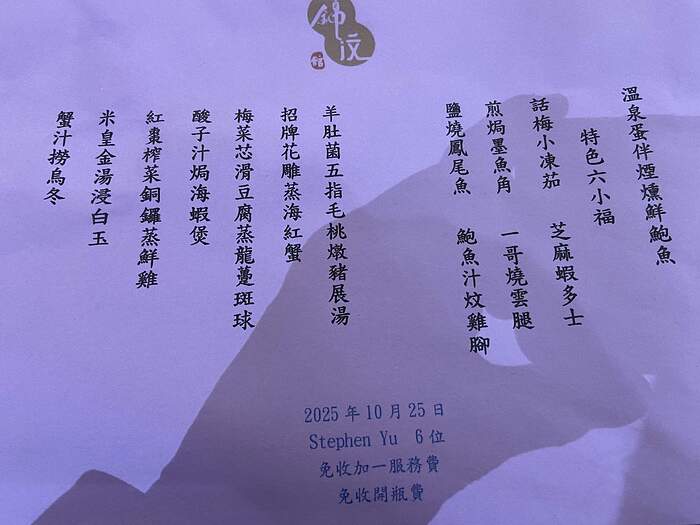 錦汶
館
溫泉蛋伴煙燻鮮鮑魚
特色六小福
話梅小凍茄 芝麻蝦多士
煎焗墨魚角 一哥燒雲腿
鹽燒鳳尾魚 鮑魚汁炆雞腳
羊肚菌五指毛桃燉豬展湯
招牌花雕蒸海紅蟹
梅菜芯滑豆腐蒸龍躉斑球
酸子汁焗海蝦煲
紅棗榨菜銅鑼蒸鮮雞
米皇金湯浸白玉
蟹汁撈烏冬
2025 年 10 月 25 日
Stephen Yu 6 位
免收加一服務費
免收開瓶費